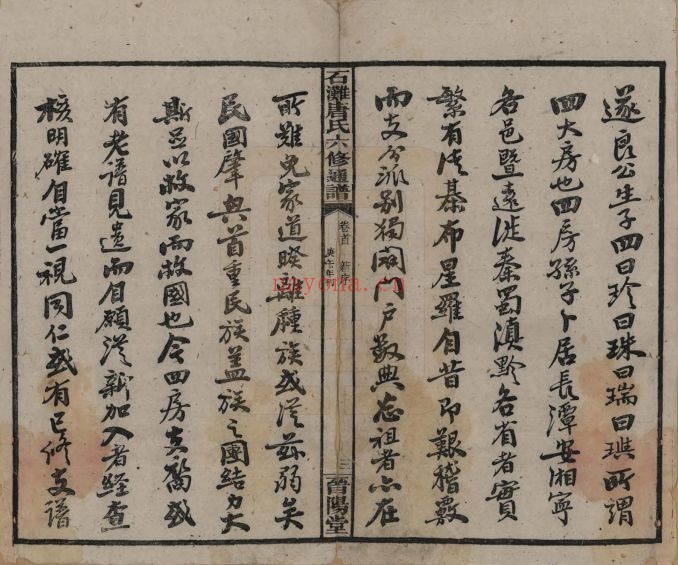 遂良公生子四曰珍曰珠曰瑞曰璵所謂
四大房也四房孫子卜居長潭安湘寧
各邑暨遠徙秦蜀滇黔各省者實
繁有徒棊布星羅自昔即艱稽覈
而支分派別獨闢門戶數典忘祖者亦在
石灘唐氏六修通譜
卷首 新序
三 晉陽堂
所難免家道睽離腫族或從茲弱矣
民國肇興首重民族蓋族之團結力大
斯足以救家而救國也今四房支裔或
有老譜見遺而自願從新加入者經查
核明確自當一視同仁或有已修支譜
nayona.cn